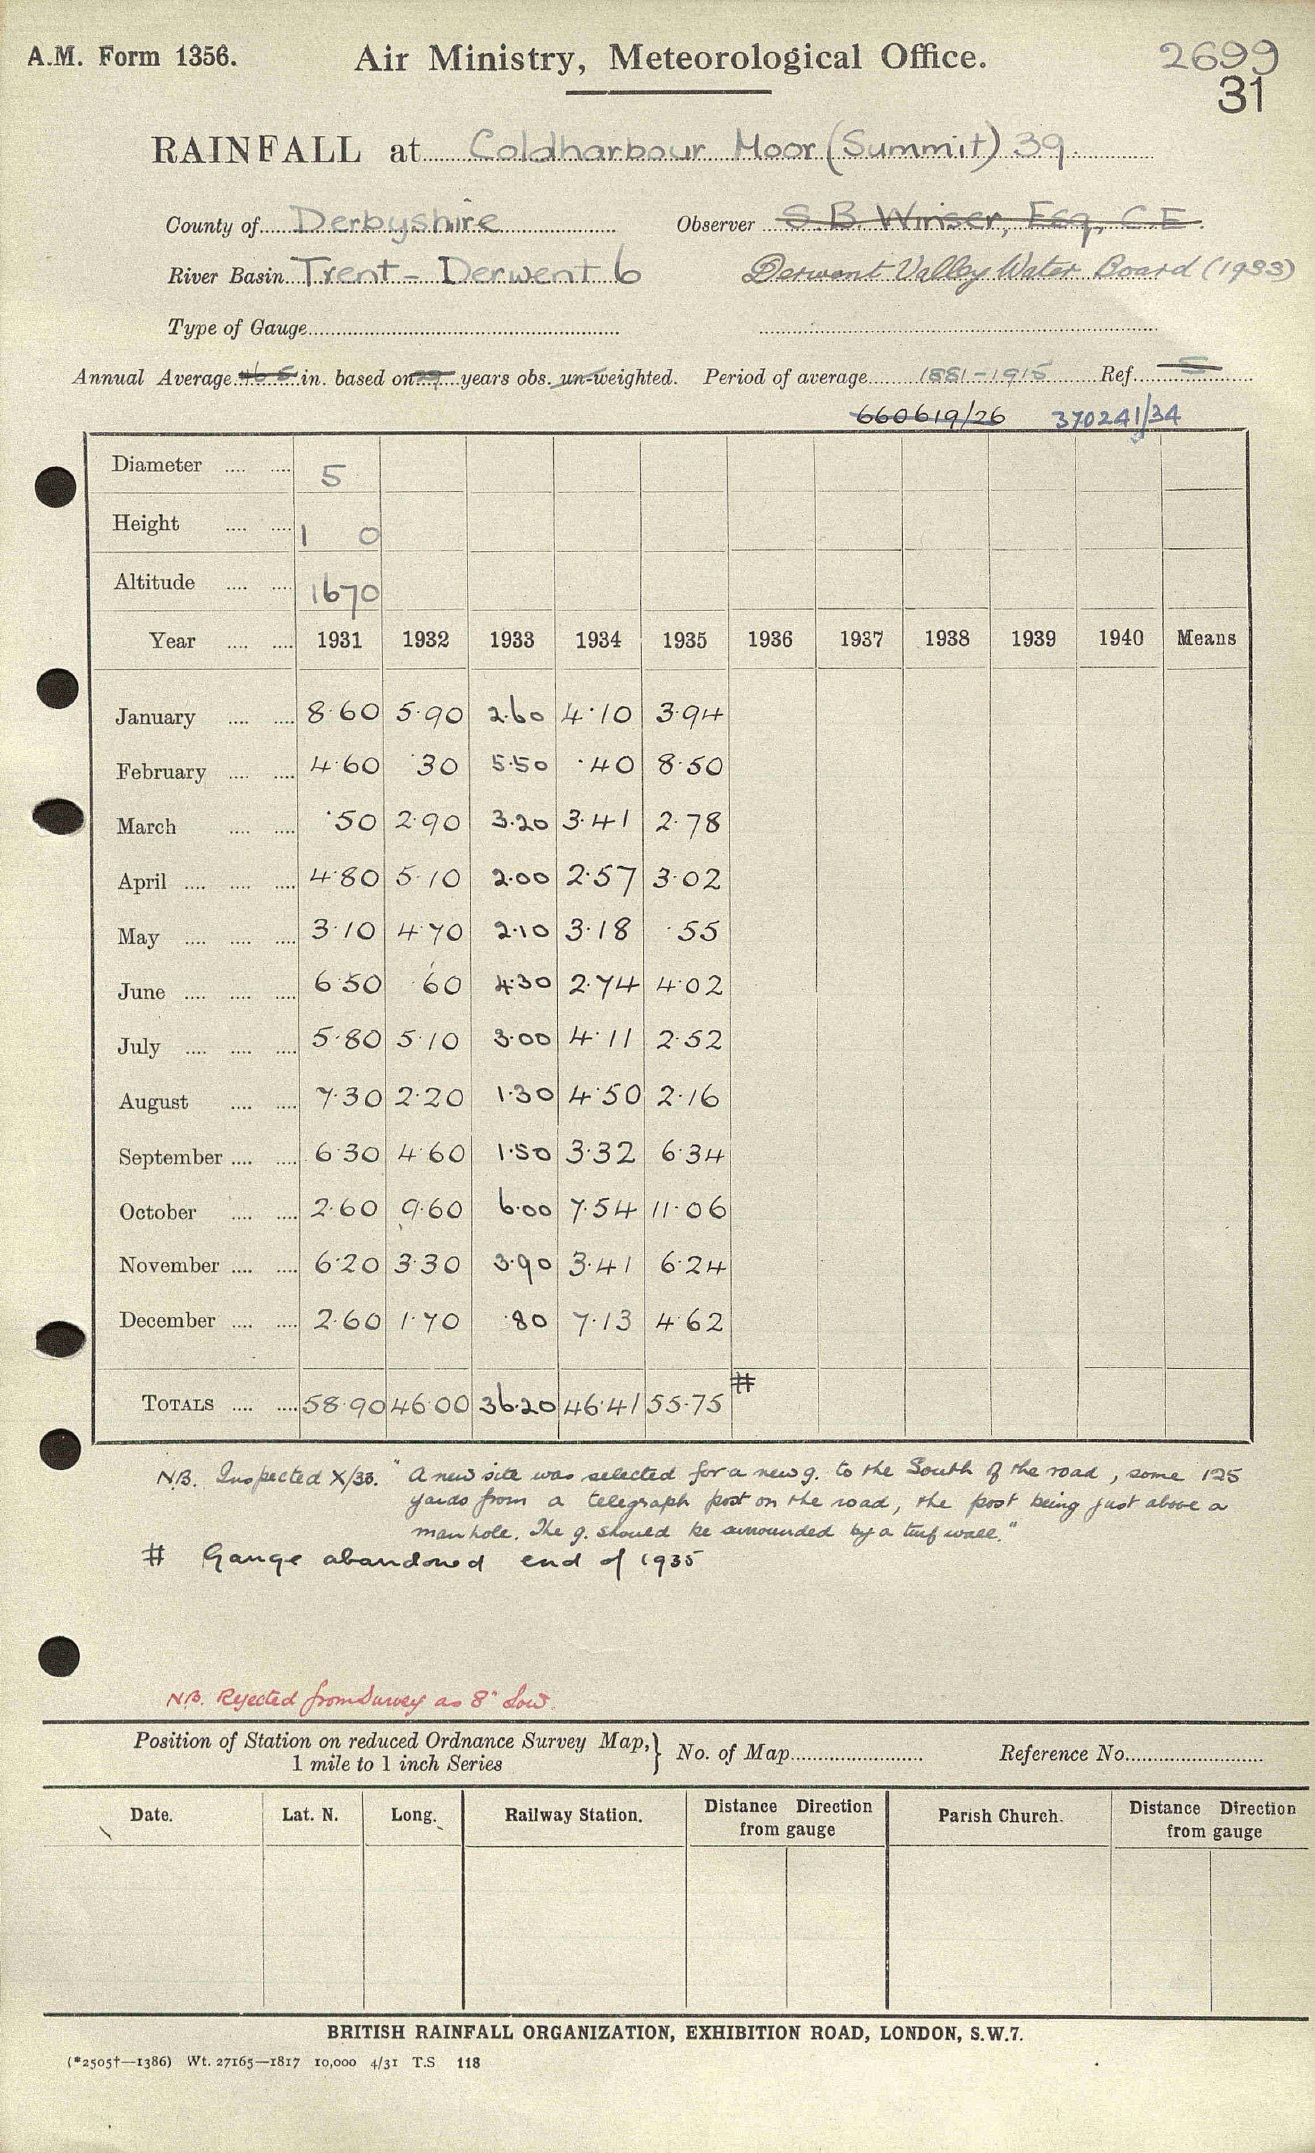 A.M. Form 1356. Air Ministry, Meteorological Office. 2699
31
RAINFALL at Coldharbour Moor (Summit) 39
County of Derbyshire Observer S.B. Winser, Esq, C.E.
River Basin Trent - Derwent 6 Derwent Valley Water Board (1933)
Type of Gauge
Annual Average in. based on years obs. un-weighted. Period of average 1881-1915 Ref. 5
660619/26 370241/34
Diameter 5
Height 1 0
Altitude 1670
Year 1931 1932 1933 1934 1935 1936 1937 1938 1939 1940 Means
January 8.60 5.90 2.60 4.10 3.94
February 4.60 .30 5.50 .40 8.50
March .50 2.90 3.20 3.41 2.78
April 4.80 5.10 2.00 2.57 3.02
May 3.10 4.70 2.10 3.18 .55
June 6.50 .60 4.30 2.74 4.02
July 5.80 5.10 3.00 4.11 2.52
August 7.30 2.20 1.30 4.50 2.16
September 6.30 4.60 1.50 3.32 6.34
October 2.60 9.60 6.00 7.54 11.06
November 6.20 3.30 3.90 3.41 6.24
December 2.60 1.70 .80 7.13 4.62
TOTALS 58.90 46.00 36.20 46.41 55.75 #
N.B. Inspected X/33. "A new site was selected for a new g. to the South of the road, some 125
yards from a telegraph post on the road, the post being just above a
manhole. The g. should be surrounded by a turf wall."
# Gauge abandoned end of 1935
N.B. Rejected from Survey as 8" low.
Position of Station on reduced Ordnance Survey Map, } No. of Map Reference No.
1 mile to 1 inch Series
Date. Lat. N. Long. Railway Station. Distance Direction from gauge Parish Church. Distance Direction from gauge
BRITISH RAINFALL ORGANIZATION, EXHIBITION ROAD, LONDON, S.W.7.
(*2505†—1386) Wt. 27165—1817 10,000 4/31 T.S 118